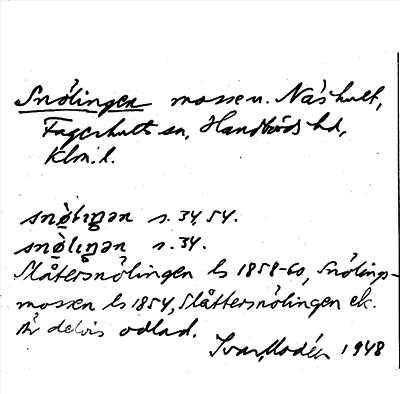 Snölingen mossen. Näshult,
Fagerhults sn, Handbörds hd,
Klm. l.
snø̀lıŋən s. 34, 54.
snø̀lıŋən s. 34.
Slåttersnölingen ls 1858-60, Snölings-
mossen ls 1854, Slåttersnölingen ek.
Är delvis odlad.
Ivar Modéer 1948